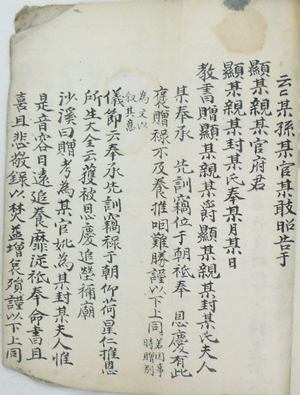 云云某孫某官某敢昭告于
顯某親某官府君
顯某親某封某氏奉某月某日
教書贈顯某親某爵顯某親某封某氏夫人
某奉承 先訓竊位于朝祗奉 恩慶有此
褒贈祿不及養摧咽難勝謹以下上同若因事時贈別
為文以叙其意
儀節云奉承先訓竊祿于朝仰荷皇仁推恩
所生大全云獲被恩慶追榮禰廟
沙溪曰贈考為某官妣為某封某夫人惟
是音容日遠追養靡從祗奉 命書且
喜且悲敬錄以焚益增哀殞謹以下上同